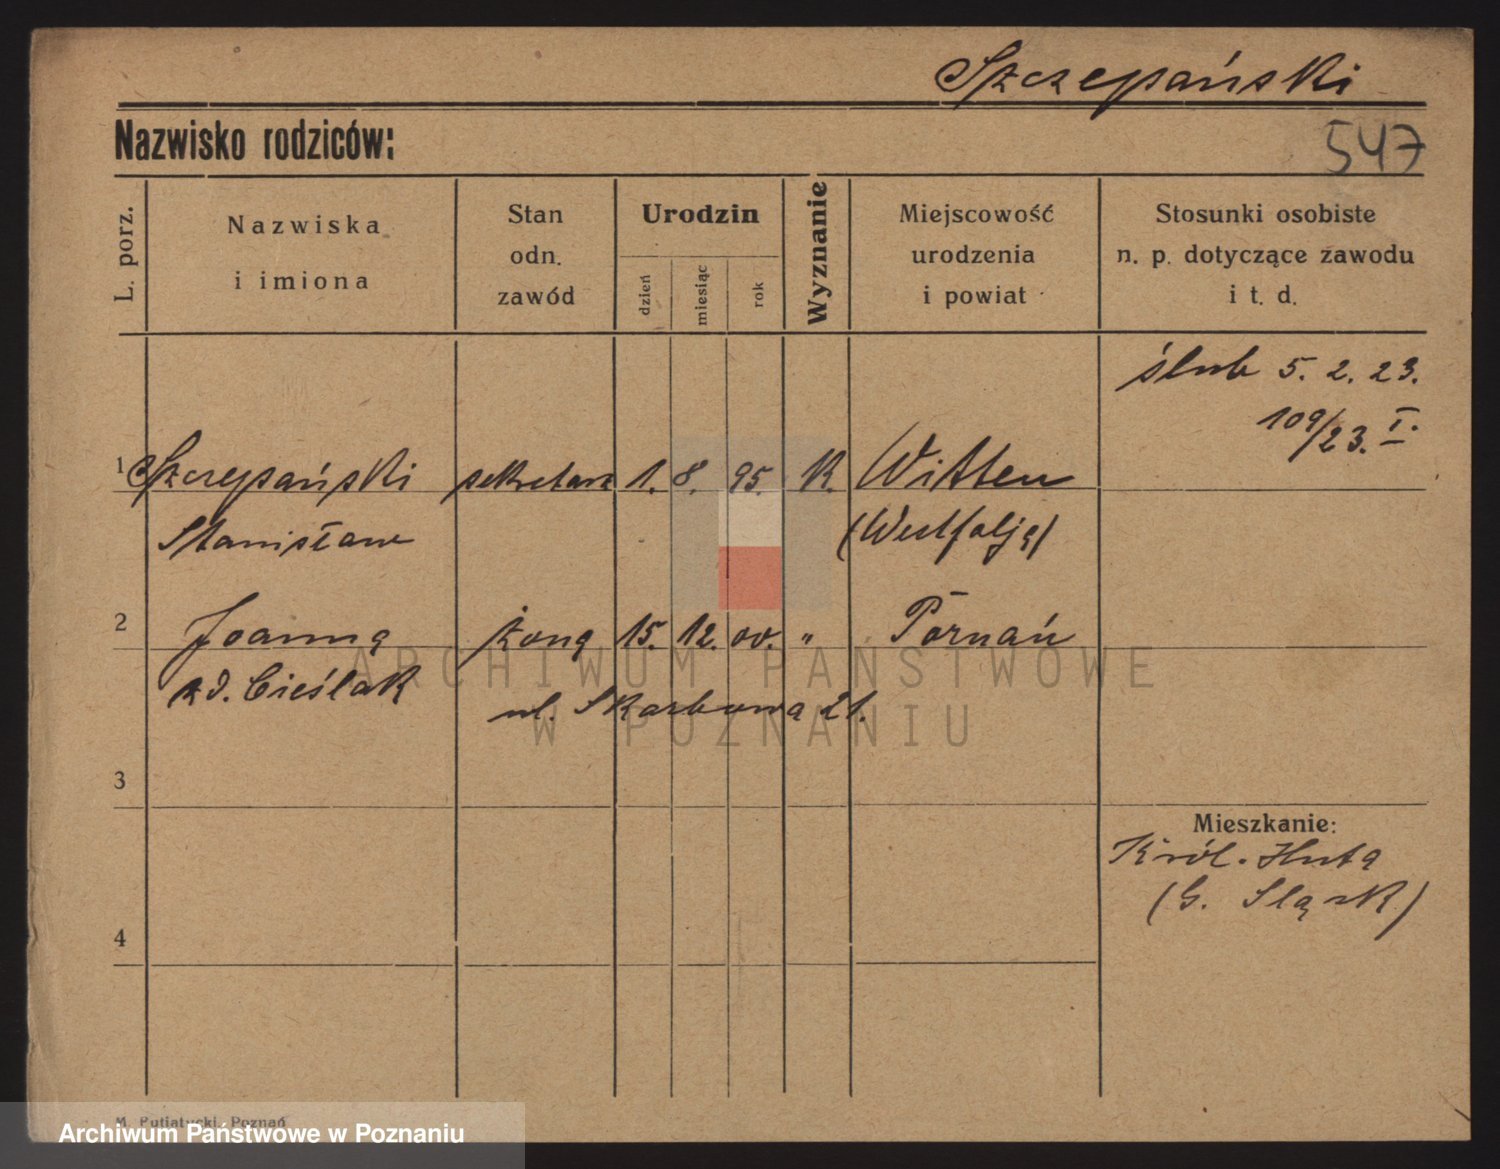 Szczepański
Nazwisko rodziców:
547
L. porz.
Nazwiska
i imiona
Stan
odn.
zawód
Urodzin
dzień
miesiąc
rok
Wyznanie
Miejscowość
urodzenia
i powiat
Stosunki osobiste
n. p. dotyczące zawodu
i t. d.
ślub 5. 2. 23.
109/23. I.
1 Szczepański sekretarz 1. 8. 95. K. Witten
Stanisław (Westfalja)
2 Joanna żona 15. 12. 00. " Poznań
zd. Cieślak
ul. Skarbowa 21.
ARCHIWUM PAŃSTWOWE
W POZNANIU
3
Mieszkanie:
Król. Huta
(G. Śląsk)
4
M. Putiatycki, Poznań
Archiwum Państwowe w Poznaniu